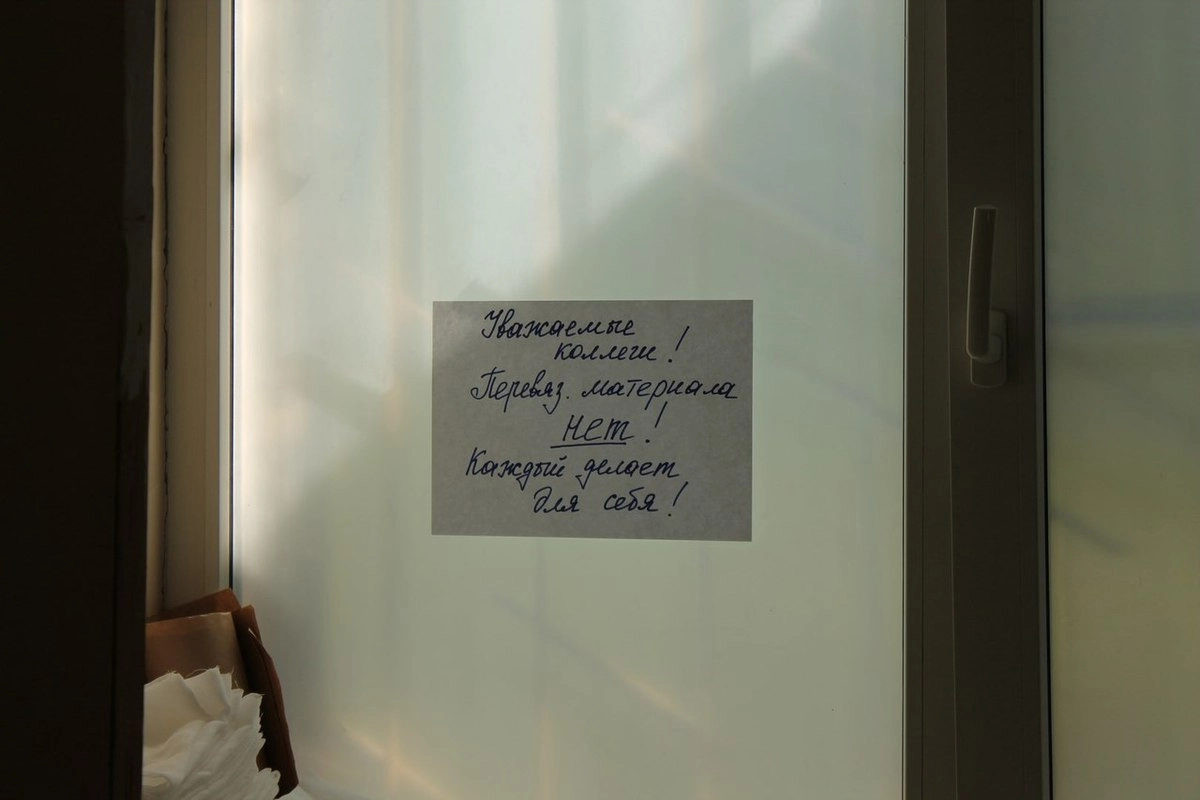 Уважаемые
коллеги!
Перевяз. материала
нет!
Каждый делает
для себя!